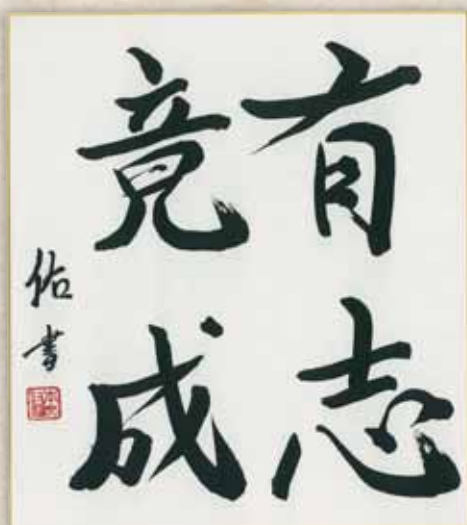 有志
竟成
佑書